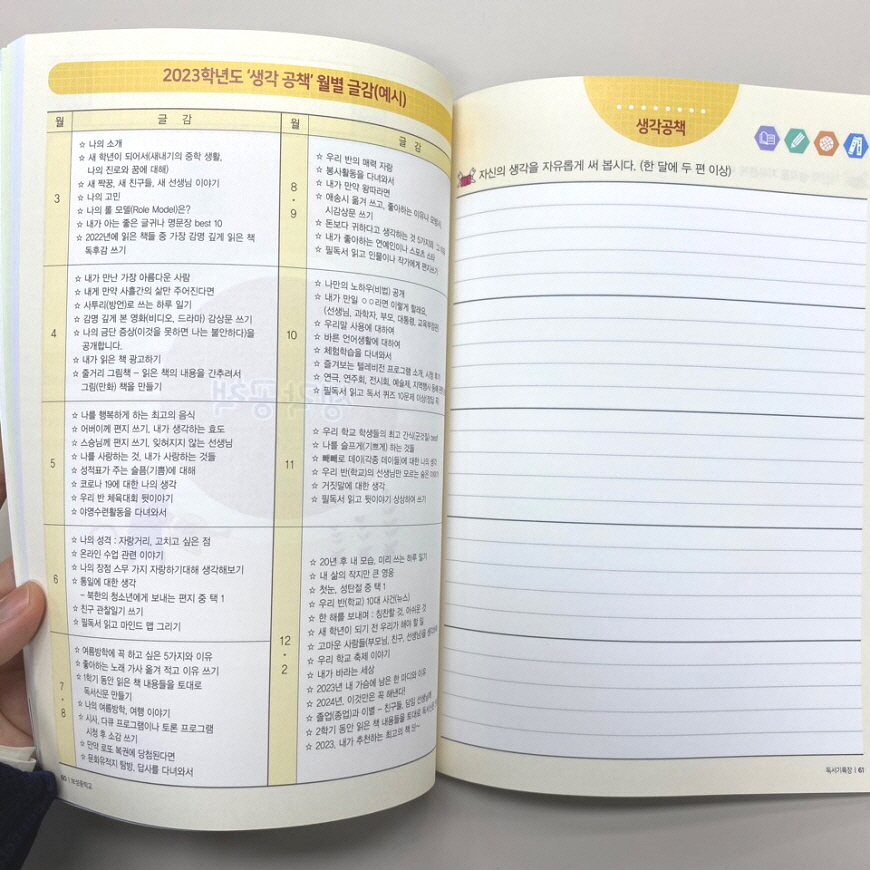 2023학년도 '생각 공책' 월별 글감(예시)
월
글 감
3
☆ 나의 소개
☆ 새 학년이 되어서(새내기의 중학 생활,
나의 진로와 꿈에 대해)
☆ 새 짝꿍, 새 친구들, 새 선생님 이야기
☆ 나의 고민
☆ 나의 롤 모델(Role Model)은?
☆ 내가 아는 좋은 글귀나 명문장 best 10
☆ 2022년에 읽은 책들 중 가장 감명 깊게 읽은 책
독후감 쓰기
4
☆ 내가 만난 가장 아름다운 사람
☆ 내게 만약 사흘간의 삶만 주어진다면
☆ 사투리(방언)로 쓰는 하루 일기
☆ 감명 깊게 본 영화(비디오, 드라마) 감상문 쓰기
☆ 나의 금단 증상(이것을 못하면 나는 불안하다)을
공개합니다.
☆ 내가 읽은 책 광고하기
☆ 줄거리 그림책 – 읽은 책의 내용을 간추려서
그림(만화) 책을 만들기
5
☆ 나를 행복하게 하는 최고의 음식
☆ 어버이께 편지 쓰기, 내가 생각하는 효도
☆ 스승님께 편지 쓰기, 잊혀지지 않는 선생님
☆ 나를 사랑하는 것, 내가 사랑하는 것들
☆ 성적표가 주는 슬픔(기쁨)에 대해
☆ 코로나 19에 대한 나의 생각
☆ 우리 반 체육대회 뒷이야기
☆ 야영수련활동을 다녀와서
6
☆ 나의 성격 : 자랑거리, 고치고 싶은 점
☆ 온라인 수업 관련 이야기
☆ 나의 장점 스무 가지 자랑하기대해 생각해보기
☆ 통일에 대한 생각
– 북한의 청소년에게 보내는 편지 중 택 1
☆ 친구 관찰일기 쓰기
☆ 필독서 읽고 마인드 맵 그리기
7
·
8
☆ 여름방학에 꼭 하고 싶은 5가지와 이유
☆ 좋아하는 노래 가사 옮겨 적고 이유 쓰기
☆ 1학기 동안 읽은 책 내용들을 토대로
독서신문 만들기
☆ 나의 여름방학, 여행 이야기
☆ 시사, 다큐 프로그램이나 토론 프로그램
시청 후 소감 쓰기
☆ 만약 로또 복권에 당첨된다면
☆ 문화유적지 탐방, 답사를 다녀와서
월
글 감
8
·
9
☆ 우리 반의 매력 자랑
☆ 봉사활동을 다녀와서
☆ 내가 만약 왕따라면
☆ 애송시 옮겨 쓰고, 좋아하는 이유나
시감상문 쓰기
☆ 돈보다 귀하다고 생각하는 것 5가지와
☆ 내가 좋아하는 연예인이나 스포츠 스타
☆ 필독서 읽고 인물이나 작가에게 편지쓰기
10
☆ 나만의 노하우(비법) 공개
☆ 내가 만일 ㅇㅇ라면 이렇게 할래요.
(선생님, 과학자, 부모, 대통령, 교육부장관
☆ 우리말 사용에 대하여
☆ 바른 언어생활에 대하여
☆ 체험학습을 다녀와서
☆ 즐겨보는 텔레비전 프로그램 소개, 시청 후기
☆ 연극, 연주회, 전시회, 예술제, 지역행사
☆ 필독서 읽고 독서 퀴즈 10문제 이상
11
☆ 우리 학교 학생들의 최고 간식(군것질) best
☆ 나를 슬프게(기쁘게) 하는 것들
☆ 빼빼로 데이(각종 데이들)에 대한 나의 생각
☆ 우리 반(학교)의 선생님만 모르는 숨은 이야기
☆ 거짓말에 대한 생각
☆ 필독서 읽고 뒷이야기 상상하여 쓰기
12
·
2
☆ 20년 후 내 모습, 미리 쓰는 하루 일기
☆ 내 삶의 작지만 큰 영웅
☆ 첫눈, 성탄절 중 택 1
☆ 우리 반(학교) 10대 사건(뉴스)
☆ 한 해를 보내며 : 칭찬할 것, 아쉬운 것
☆ 새 학년이 되기 전 우리가 해야 할 일
☆ 고마운 사람들(부모님, 친구, 선생님)을
☆ 우리 학교 축제 이야기
☆ 내가 바라는 세상
☆ 2023년 내 가슴에 남은 한 마디와 이유
☆ 2024년, 이것만은 꼭 해낸다!
☆ 졸업(종업)과 이별 – 친구들, 담임 선생님께
☆ 2학기 동안 읽은 책 내용들을 토대로 독서신문
☆ 2023, 내가 추천하는 최고의 책
60 | 보성중학교
생각공책
자신의 생각을 자유롭게 써 봅시다. (한 달에 두 편 이상)
독서기록장 | 61